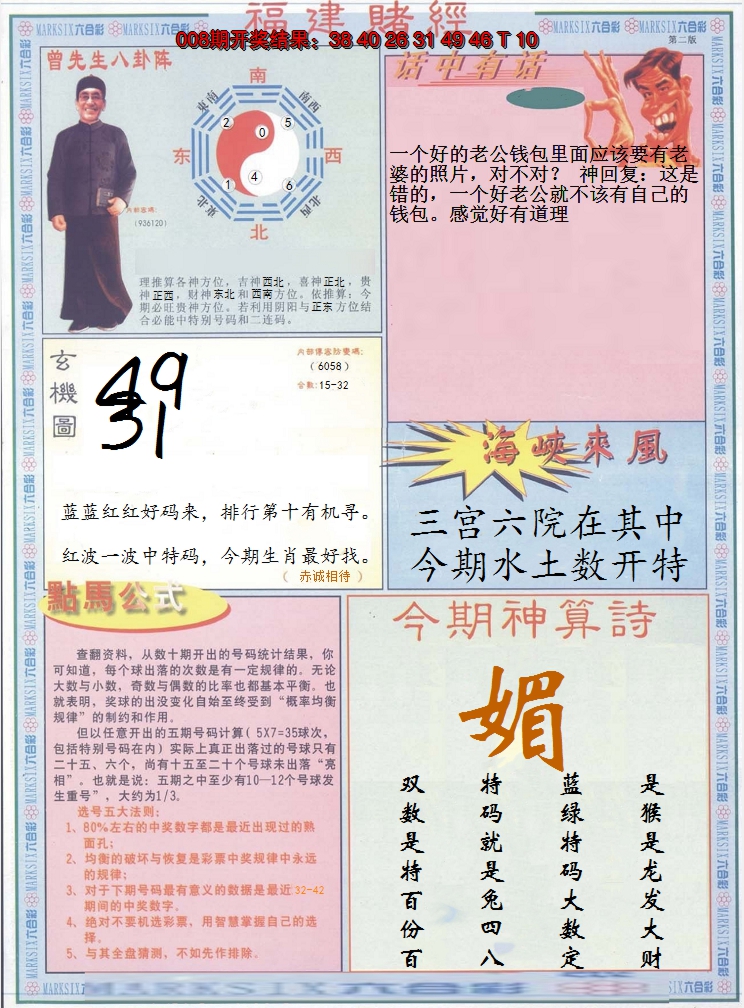 福建賭經
008期开奖结果：38 40 26 31 49 46 T 10
MARKSIX六合彩
第二版
曾先生八卦阵
南
東南
南西
2
0
5
东
西
1
4
6
東北
北西
北
內部密碼:
(936120)
理推算各神方位，吉神西北，喜神正北，贵
神正西，财神东北和西南方位。依推算：今
期必旺贵神方位。若利用阴阳与正东方位结
合必能中特别号码和二连码。
话中有话
一个好的老公钱包里面应该要有老
婆的照片，对不对？ 神回复：这是
错的，一个好老公就不该有自己的
钱包。感觉好有道理
玄機圖
49
31
(6058)
合数:15-32
蓝蓝红红好码来，排行第十有机寻。
红波一波中特码，今期生肖最好找。
（ 赤诚相待 ）
海峽來風
三宫六院在其中
今期水土数开特
點馬公式
查翻资料，从数十期开出的号码统计结果，你
可知道，每个球出落的次数是有一定规律的。无论
大数与小数，奇数与偶数的比率也都基本平衡。也
就表明，奖球的出没变化自始至终受到“概率均衡
规律”的制约和作用。
但以任意开出的五期号码计算( 5X7=35球次，
包括特别号码在内) 实际上真正出落过的号球只有
二十五、六个，尚有十五至二十个号球未出落“亮
相”。也就是说：五期之中至少有10—12个号球发
生重号”，大约为1/3。
选号五大法则：
1、80%左右的中奖数字都是最近出现过的熟
面孔；
2、均衡的破坏与恢复是彩票中奖规律中永远
的规律；
3、对于下期号码最有意义的数据是最近 32-42
期间的中奖数字。
4、绝对不要机选彩票，用智慧掌握自己的选
择。
5、与其全盘猜测，不如先作排除。
今期神算詩
媚
是猴是龙发大财
蓝绿特码大数定
特码就是兔四八
双数是特百份百